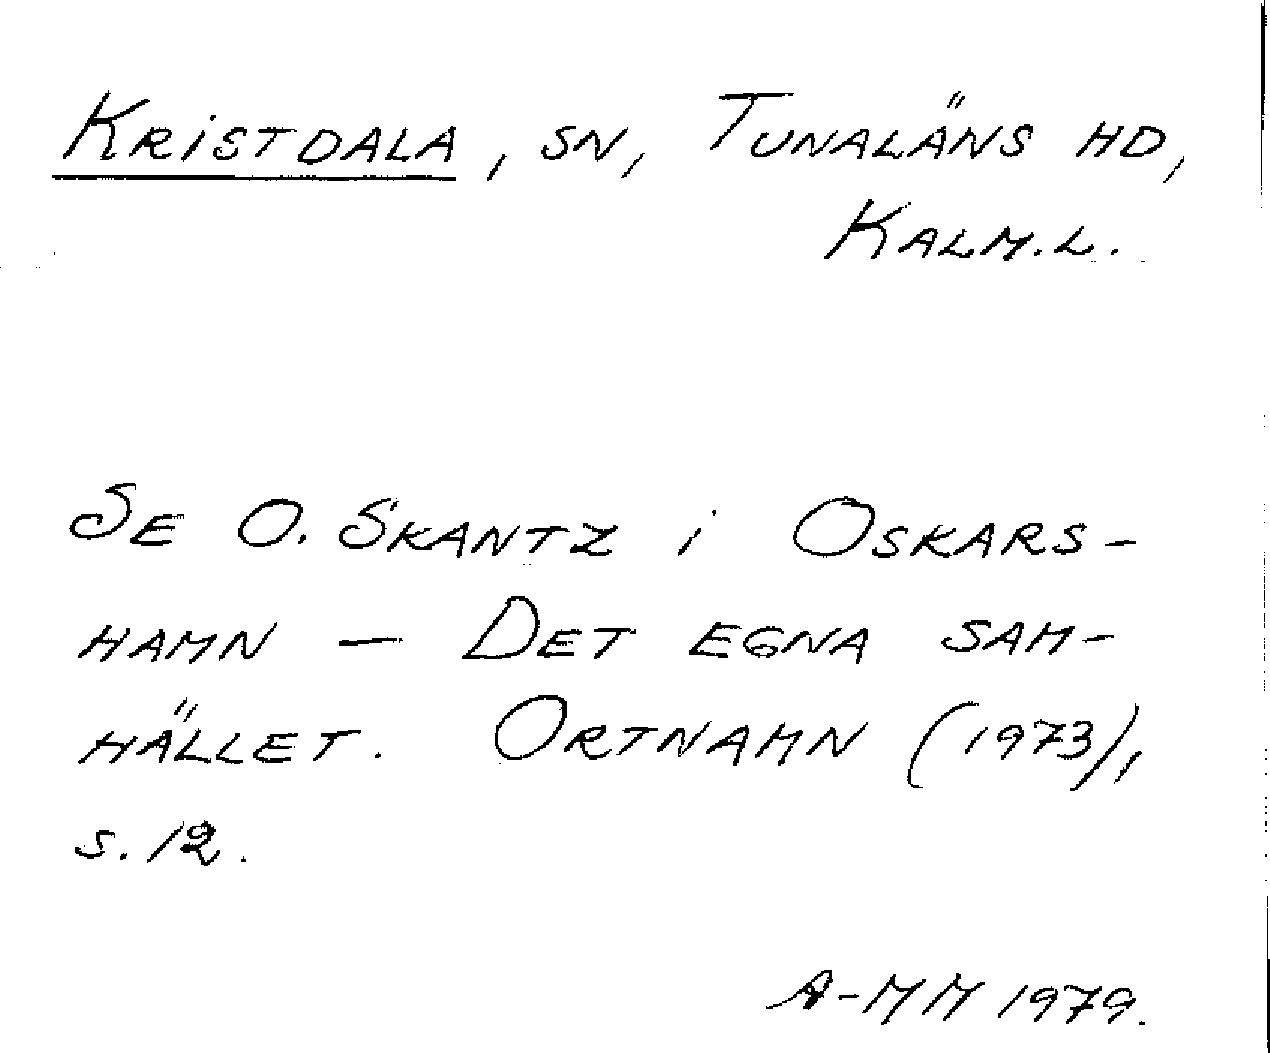 Kristdala, sn, Tunaläns hd,
Kalm.l.
Se O. Skantz i Oskars-
hamn — Det egna sam-
hället. Ortnamn (1973),
s. 12.
A-MM 1979.